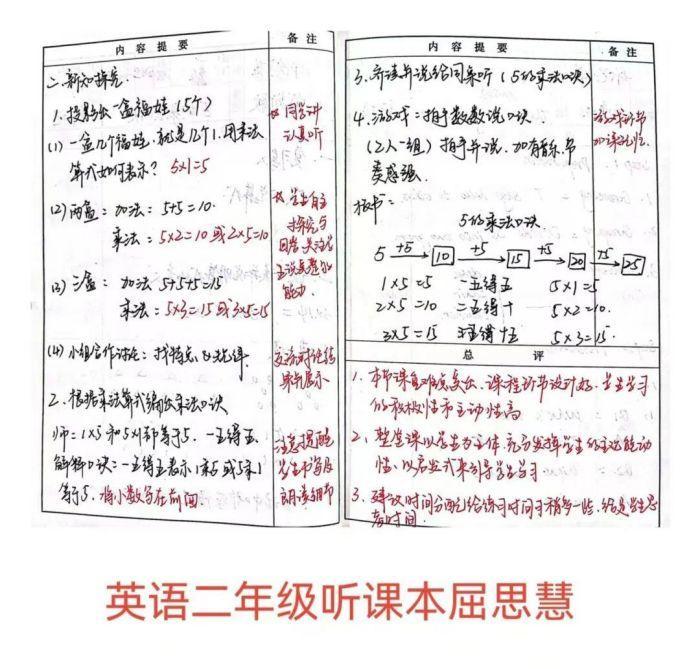 内容提要
备注
二、新知探究.
1.投影出一盒福娃(5个)
(1)一盒几个福娃,就是几个1.用乘法
算式如何表示? 5×1=5
(2)两盒:加法:5+5=10.
乘法:5×2=10或2×5=10
(3)三盒:加法 5+5+5=15
乘法:5×3=15或3×5=15
(4)小组合作讨论:找特点
2.根据乘法算式编出乘法口诀
师:1×5和5×1都等于5.一五得五.
解释口诀:一五得五表示1乘5或5乘1
等于5.将小数字在前面.
同学讲
认真听
学生自主
探究与
回答.关注学
生说完整的
能力.
交流讨论结
果并展示
注意提醒
学生书写及
朗读细节
内容提要
备注
3.齐读并说给同桌听(5的乘法口诀)
4.游戏:拍手数数说口诀
(2人一组)拍手并说.加有音乐.节
奏感强.
游戏环节
加深记忆.
板书:
5的乘法口诀.
5 +5 10 +5 15 +5 20 +5 25
1×5=5 一五得五 5×1=5
2×5=10 二五得十 5×2=10.
3×5=15 三五得十五 5×3=15.
总评
1.本节课重难点突出.课程环节设计好.学生学习
的积极性和主动性高
2.整堂课以学生为主体.充分发挥学生的主观能动
性.以启发式来引导学生学习
3.建议时间分配给练习时间可稍多一些.给足学生思
考时间.
英语二年级听课本屈思慧